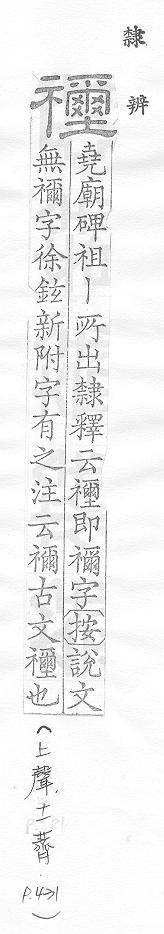 隸辨
𥜬
堯廟碑祖丨所出隸釋云𥜬即禰字按說文
無禰字徐鉉新附字有之注云禰古文𥜬也
(上聲十一薺 P.431)